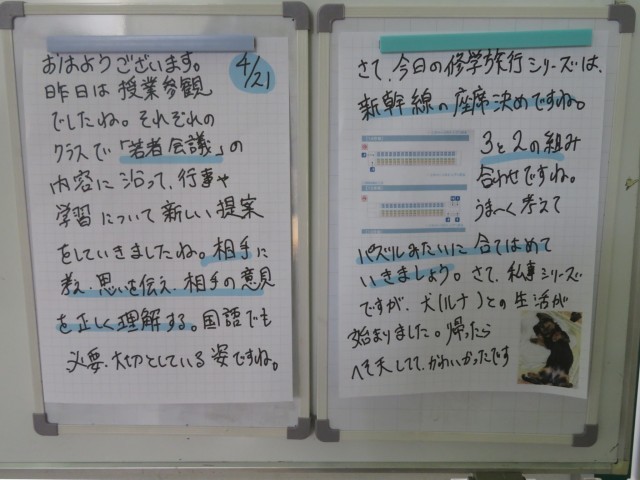 おはようございます。
4/21
昨日は授業参観
でしたね。それぞれの
クラスで「若者会議」の
内容に沿って、行事や
学習について新しい提案
をしていきましたね。相手に
考え・思いを伝え、相手の意見
を正しく理解する。国語でも
必要、大切としている姿ですね。
さて、今日の修学旅行シリーズは、
新幹線の座席決めですね。
3と2の組み
合わせですね。
うま〜く考えて
パズルみたいに合てはめて
いきましょう。さて、私事シリーズ
ですが、犬(ルナ)との生活が
始まりました。帰ったら
へそ天してて、かわいかったです